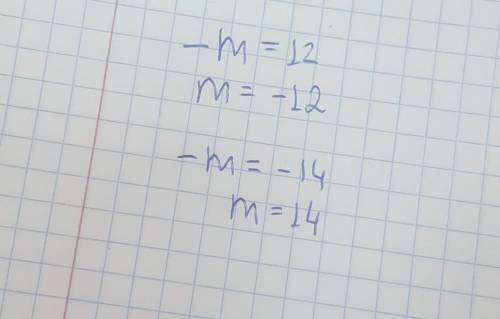 -m = 12
m = -12
-m = -14
m = 14